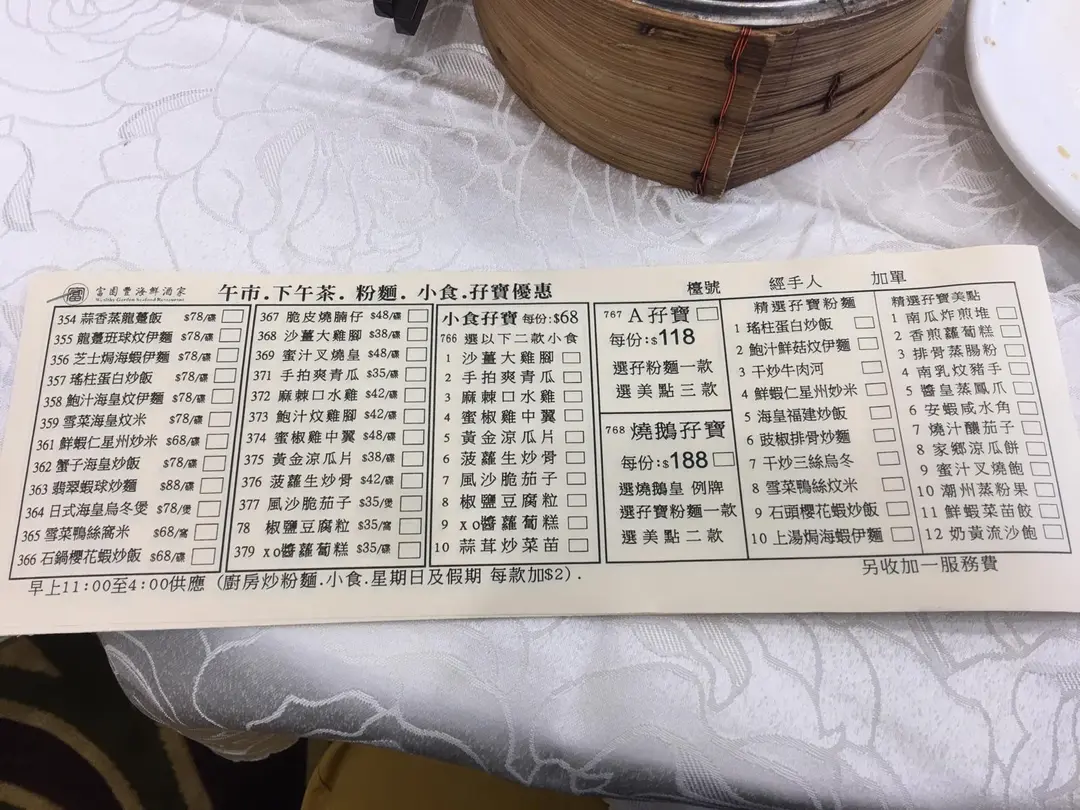 富園豐海鮮酒家
Wealthy Garden Seafood Restaurant
午市.下午茶. 粉麵. 小食.孖寶優惠
檯號 經手人 加單
354 蒜香蒸龍躉飯 $78/碟
355 龍躉班球炆伊麵 $78/碟
356 芝士焗海蝦伊麵 $78/碟
357 瑤柱蛋白炒飯 $78/碟
358 鮑汁海皇炆伊麵 $78/碟
359 雪菜海皇炆米 $78/碟
361 鮮蝦仁星州炒米 $68/碟
362 蟹子海皇炒飯 $78/碟
363 翡翠蝦球炒麵 $88/碟
364 日式海皇烏冬煲 $78/煲
365 雪菜鴨絲窩米 $68/窩
366 石鍋櫻花蝦炒飯 $68/碟
367 脆皮燒腩仔 $48/碟
368 沙薑大雞腳 $38/碟
369 蜜汁叉燒皇 $48/碟
371 手拍爽青瓜 $35/碟
372 麻棘口水雞 $42/碟
373 鮑汁炆雞腳 $38/碟
374 蜜椒雞中翼 $48/碟
375 黃金涼瓜片 $38/碟
376 菠蘿生炒骨 $42/碟
377 風沙脆茄子 $35/煲
78 椒鹽豆腐粒 $35/窩
379 xo醬蘿蔔糕 $35/碟
小食孖寶 每份:$68
766 選以下二款小食
1 沙薑大雞腳
2 手拍爽青瓜
3 麻棘口水雞
4 蜜椒雞中翼
5 黃金涼瓜片
6 菠蘿生炒骨
7 風沙脆茄子
8 椒鹽豆腐粒
9 xo醬蘿蔔糕
10 蒜茸炒菜苗
767 A孖寶
每份:$118
選孖粉麵一款
選美點三款
768 燒鵝孖寶
每份:$188
選燒鵝皇 例牌
選孖寶粉麵一款
選美點二款
精選孖寶粉麵
1 瑤柱蛋白炒飯
2 鮑汁鮮菇炆伊麵
3 干炒牛肉河
4 鮮蝦仁星州炒米
5 海皇福建炒飯
6 豉椒排骨炒麵
7 干炒三絲烏冬
8 雪菜鴨絲炆米
9 石頭櫻花蝦炒飯
10 上湯焗海蝦伊麵
精選孖寶美點
1 南瓜炸煎堆
2 香煎蘿蔔糕
3 排骨蒸腸粉
4 南乳炆豬手
5 醬皇蒸鳳爪
6 安蝦咸水角
7 燒汁釀茄子
8 家鄉涼瓜餅
9 蜜汁叉燒飽
10 潮州蒸粉果
11 鮮蝦菜苗餃
12 奶黃流沙飽
早上11:00至4:00供應 (廚房炒粉麵.小食.星期日及假期 每款加$2).
另收加一服務費